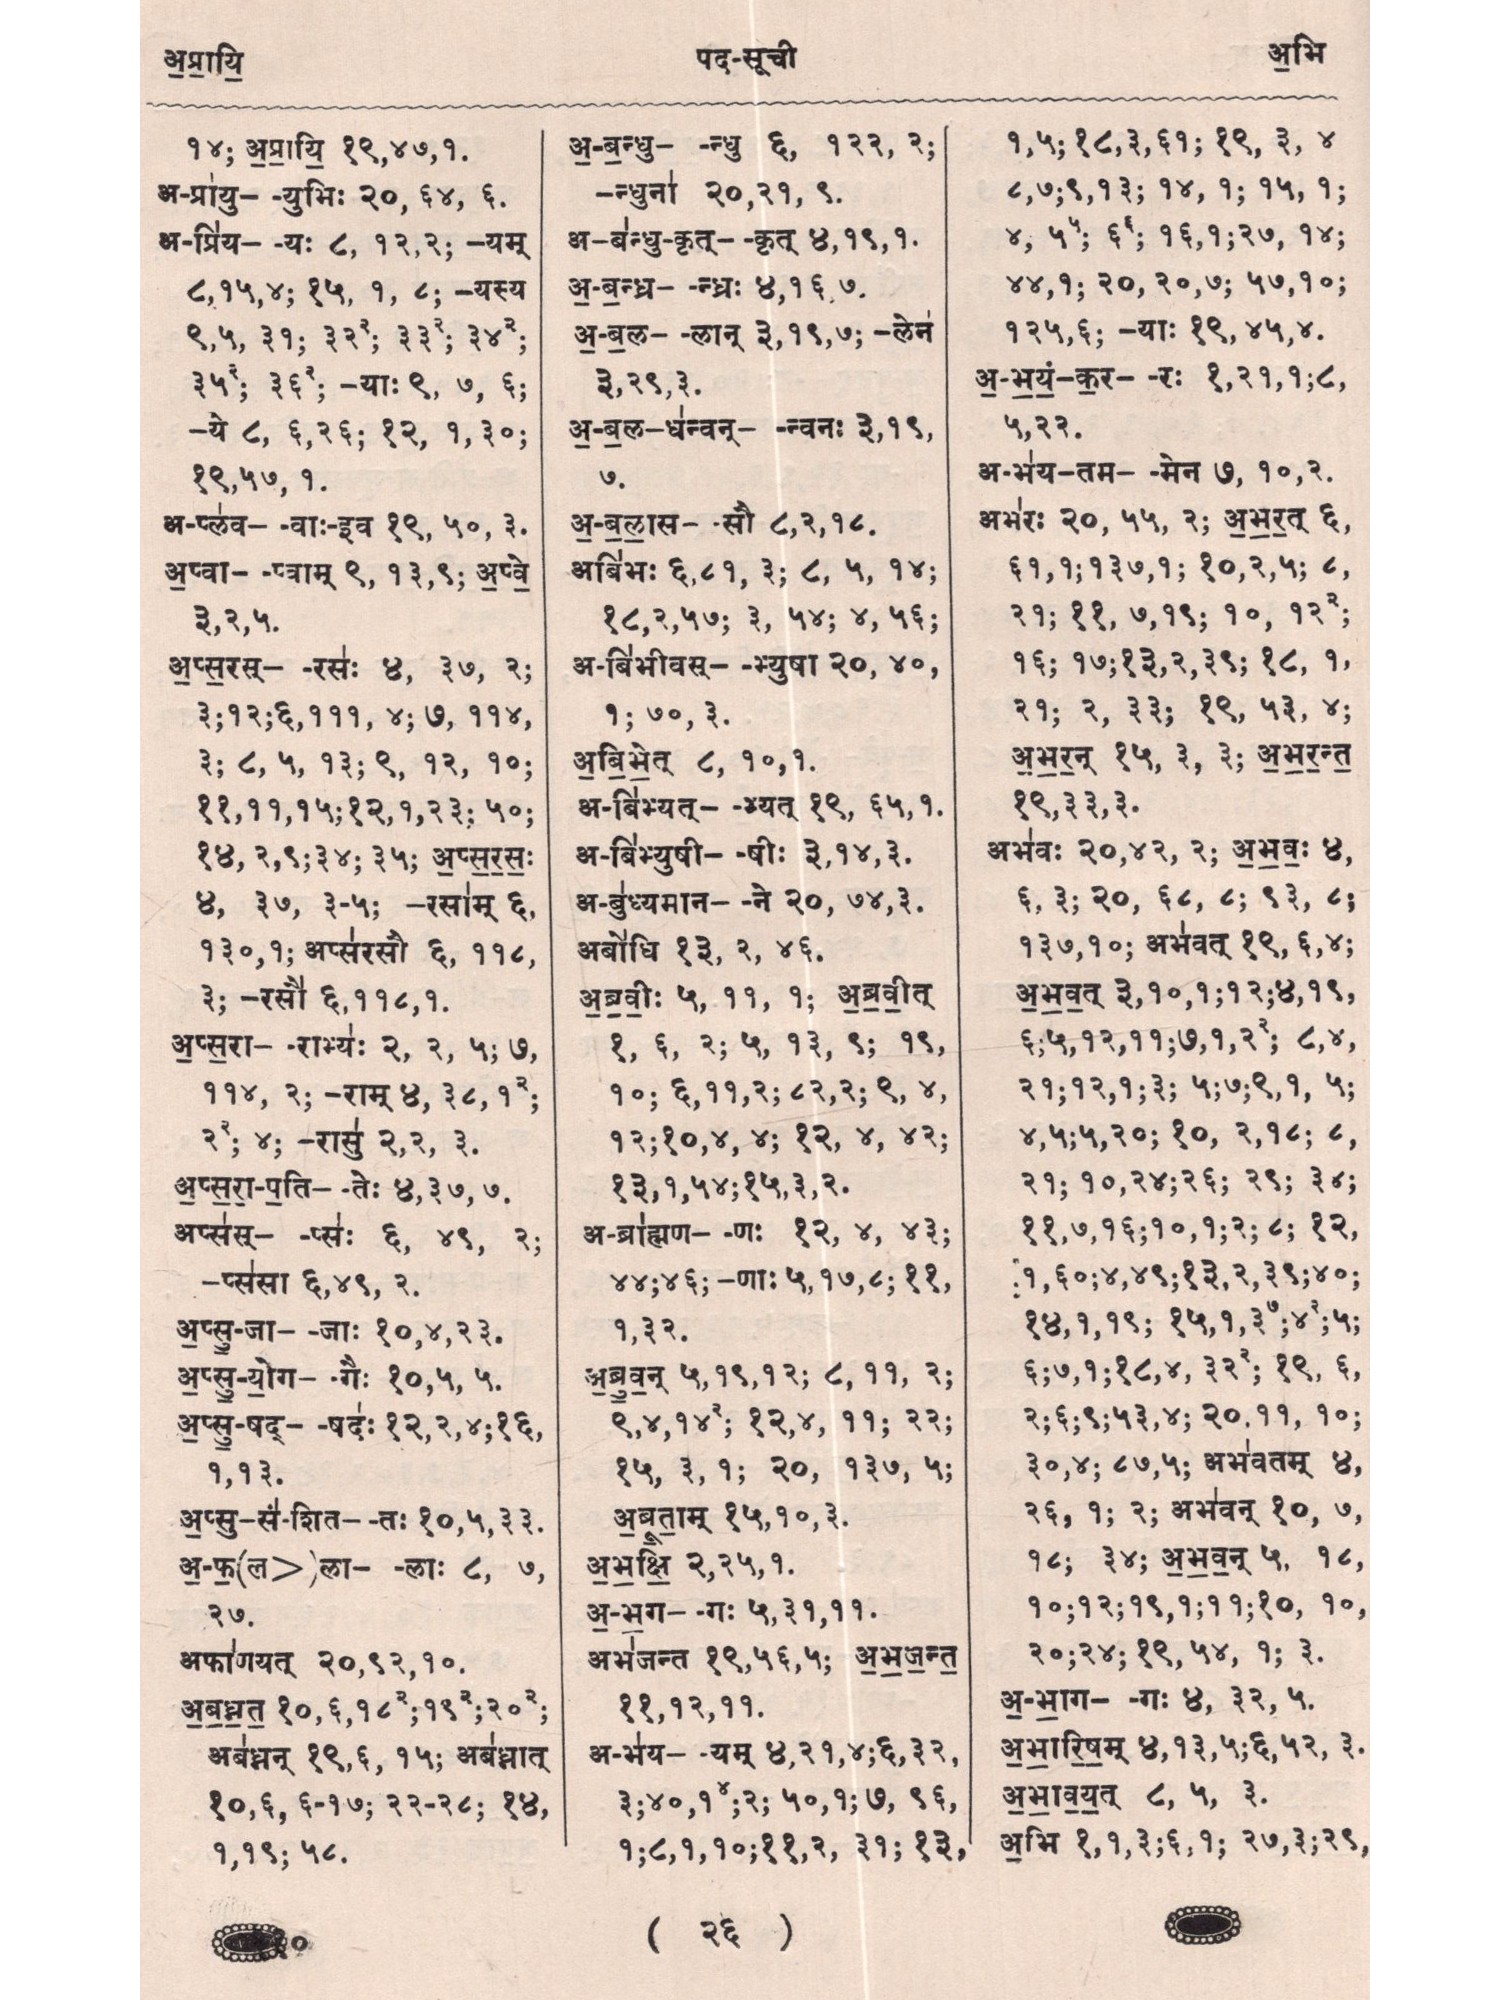 अ॒प्रा॒यि॒
पद-सूची
अ॒भि
१४; अ॒प्रा॒यि॒ १९,४७,१.
अ-प्रा॑यु– -युभिः २०, ६४, ६.
अ-प्रि॑य– -यः ८, १२,२; –यम्
८,१५,४; १५, १, ८; –यस्य
९,५, ३१; ३२२; ३३२; ३४२;
३५२; ३६२; –याः ९, ७, ६;
–ये ८, ६,२६; १२, १,३०;
१९,५७, १.
अ-प्ल॑व– -वाः-इव १९, ५०, ३.
अ॒प्वा– -प्वाम् ९, १३,९; अ॒प्वे॒
३,२,५.
अ॒प्स॒रस्– -रसः॑ ४, ३७, २;
३;१२;६,१११, ४; ७, ११४,
३; ८, ५, १३; ९, १२, १०;
११,११,१५;१२,१,२३; ५०;
१४, २,९;३४; ३५; अ॒प्स॒र॒सः॒
४, ३७, ३-५; –रसा॑म् ६,
१३०,१; अप्स॑रसौ ६, ११८,
३; –रसौ॑ ६,११८,१.
अ॒प्स॒रा– -राभ्यः॑ २, २, ५; ७,
११४, २; –राम् ४, ३८, १२;
२२; ४; –रासु॑ २,२, ३.
अ॒प्स॒रा॒-प॒ति– -तेः ४,३७, ७.
अप्स॑स्– -प्सः॑ ६, ४९, २;
–प्स॑सा ६,४९, २.
अ॒प्सु॒-जा– -जाः १०,४,२३.
अ॒प्सु॒-यो॒ग– -गैः १०,५, ५.
अ॒प्सु॒-षद्– -षदः॑ १२,२,४;१६,
१,१३.
अ॒प्सु–सं॑-शित– -तः १०,५,३३.
अ॒-फ॒(ल>)ला– -लाः ८, ७,
२७.
अफा॑णयत् २०,९२,१०.
अ॒ब॒ध्न॒त॒ १०,६,१८२;१९२;२०२;
अब॑ध्नन् १९,६, १५; अब॑ध्नात्
१०,६, ६-१७; २२-२८; १४,
१,१९; ५८.
अ॒-ब॒न्धु– -न्धु ६, १२२, २;
–न्धुना॑ २०,२१, ९.
अ–ब॑न्धु-कृत्– -कृत् ४,१९,१.
अ॒-ब॒न्ध्र– -न्ध्रः ४,१६,७.
अ॒-ब॒ल– -लान् ३,१९,७; –लेन॑
३,२९,३.
अ॒-ब॒ल–ध॑न्वन्– -न्वनः ३,१९,
७.
अ॒-ब॒ला॒स– -सौ ८,२,१८.
अबि॑भः ६,८१, ३; ८, ५, १४;
१८,२,५७; ३, ५४; ४, ५६;
अ-बि॑भीवस्– -भ्युषा २०, ४०,
१; ७०, ३.
अ॒बि॒भे॒त् ८, १०,१.
अ-बि॑भ्यत्– -भ्यत् १९, ६५,१.
अ-बि॑भ्युषी– -षीः ३,१४,३.
अ-बु॑ध्यमान– -ने २०, ७४,३.
अबो॑धि १३, २, ४६.
अ॒ब्र॒वीः॒ ५, ११, १; अ॒ब्र॒वी॒त्
१, ६, २; ५, १३, ९; १९,
१०; ६,११,२; ८२,२; ९, ४,
१२;१०,४, ४; १२, ४, ४२;
१३,१,५४;१५,३,२.
अ-ब्रा॑ह्मण– -णः १२, ४, ४३;
४४;४६; –णाः ५,१७,८; ११,
१,३२.
अ॒ब्रु॒व॒न् ५,१९,१२; ८, ११, २;
९,४,१४२; १२,४, ११; २२;
१५, ३, १; २०, १३७, ५;
अ॒ब्रू॒ता॒म् १५,१०,३.
अ॒भ॒क्षि॒ २,२५,१.
अ॒-भ॒ग– -गः ५,३१,११.
अभ॑जन्त १९,५६,५; अ॒भ॒ज॒न्त॒
११,१२,११.
अ-भ॑य– -यम् ४,२१,४;६,३२,
३;४०,१४;२; ५०,१; ७, ९६,
१;८,१,१०;११,२, ३१; १३,
१,५; १८,३,६१; १९, ३, ४
८,७;९,१३; १४, १; १५, १;
४, ५५; ६६; १६,१;२७, १४;
४४,१; २०, २०,७; ५७,१०;
१२५,६; –याः १९, ४५,४.
अ॒-भ॒यं॒–क॒र– -रः १,२१,१;८,
५,२२.
अ-भ॑य–तम– -मेन ७, १०,२.
अभ॑रः २०, ५५, २; अ॒भ॒र॒त् ६,
६१,१;१३७,१; १०,२,५; ८,
२१; ११, ७,१९; १०, १२२;
१६; १७;१३,२,३९; १८, १,
२१; २, ३३; १९, ५३, ४;
अ॒भ॒र॒न् १५, ३, ३; अ॒भ॒र॒न्त॒
१९,३३,३.
अभ॑वः २०,४२, २; अ॒भ॒वः॒ ४,
६, ३; २०, ६८, ८; ९३, ८;
१३७,१०; अभ॑वत् १९, ६,४;
अ॒भ॒व॒त् ३,१०,१;१२;४,१९,
६;५,१२,११;७,१,२२; ८,४,
२१;१२,१;३; ५;७;९,१, ५;
४,५;५,२०; १०, २,१८; ८,
२१; १०,२४;२६; २९; ३४;
११,७,१६;१०,१;२; ८; १२,
१,६०;४,४९;१३,२,३९;४०;
१४,१,१९; १५,१,३७;४२;५;
६;७,१;१८,४, ३२२; १९, ६,
२;६;९;५३,४; २०,११, १०;
३०,४; ८७,५; अभ॑वतम् ४,
२६, १; २; अभ॑वन् १०, ७,
१८; ३४; अ॒भ॒व॒न् ५, १८,
१०;१२;१९,१;११;१०, १०,
२०;२४; १९, ५४, १; ३.
अ॒-भा॒ग– -गः ४, ३२, ५.
अ॒भा॒रि॒ष॒म् ४,१३,५;६,५२, ३.
अ॒भा॒व॒य॒त् ८, ५, ३.
अ॒भि १,१,३;६,१; २७,३;२९,
( २६ )